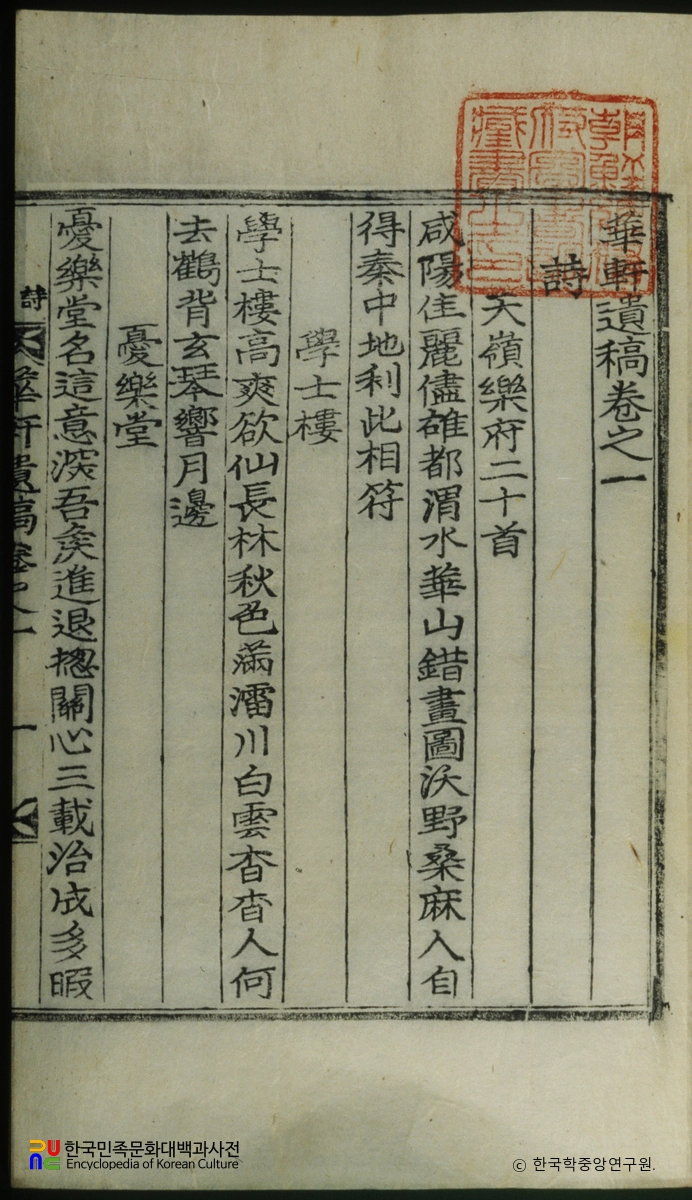 華軒遺稿卷之一
詩
天嶺樂府二十首
咸陽佳麗儘雄都渭水華山錯畫圖沃野桑麻人自
得秦中地利此相符
學士樓
學士樓高爽欲仙長林秋色滿㵢川白雲杳杳人何
去鶴背玄琴響月邊
憂樂堂
憂樂堂名這意深吾矦進退揔關心三載治成多暇
詩
華軒遺稿卷之一
一
한국민족문화대백과사전
Encyclopedia of Korean Culture
ⓒ 한국학중앙연구원.